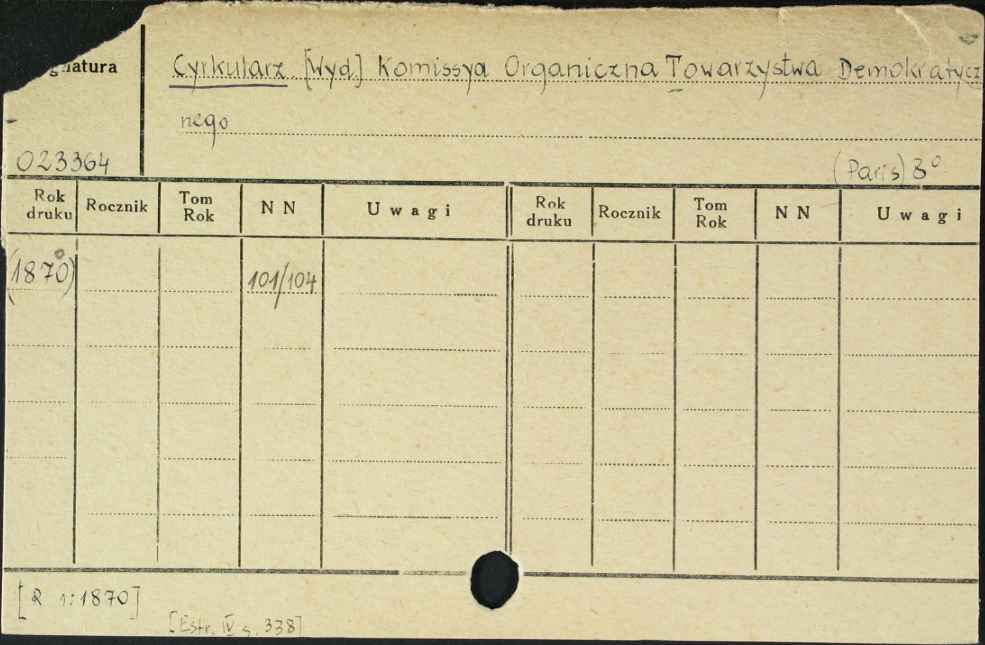 gnatura
Cyrkularz [Wyd] Komissya Organiczna Towarzystwa Demokratycz
nego
023364
(Paris) 8°
Rok druku Rocznik Tom Rok NN Uwagi Rok druku Rocznik Tom Rok NN Uwagi
(1870) 101/104
[R 1:1870]
[Estr. IV s. 338]